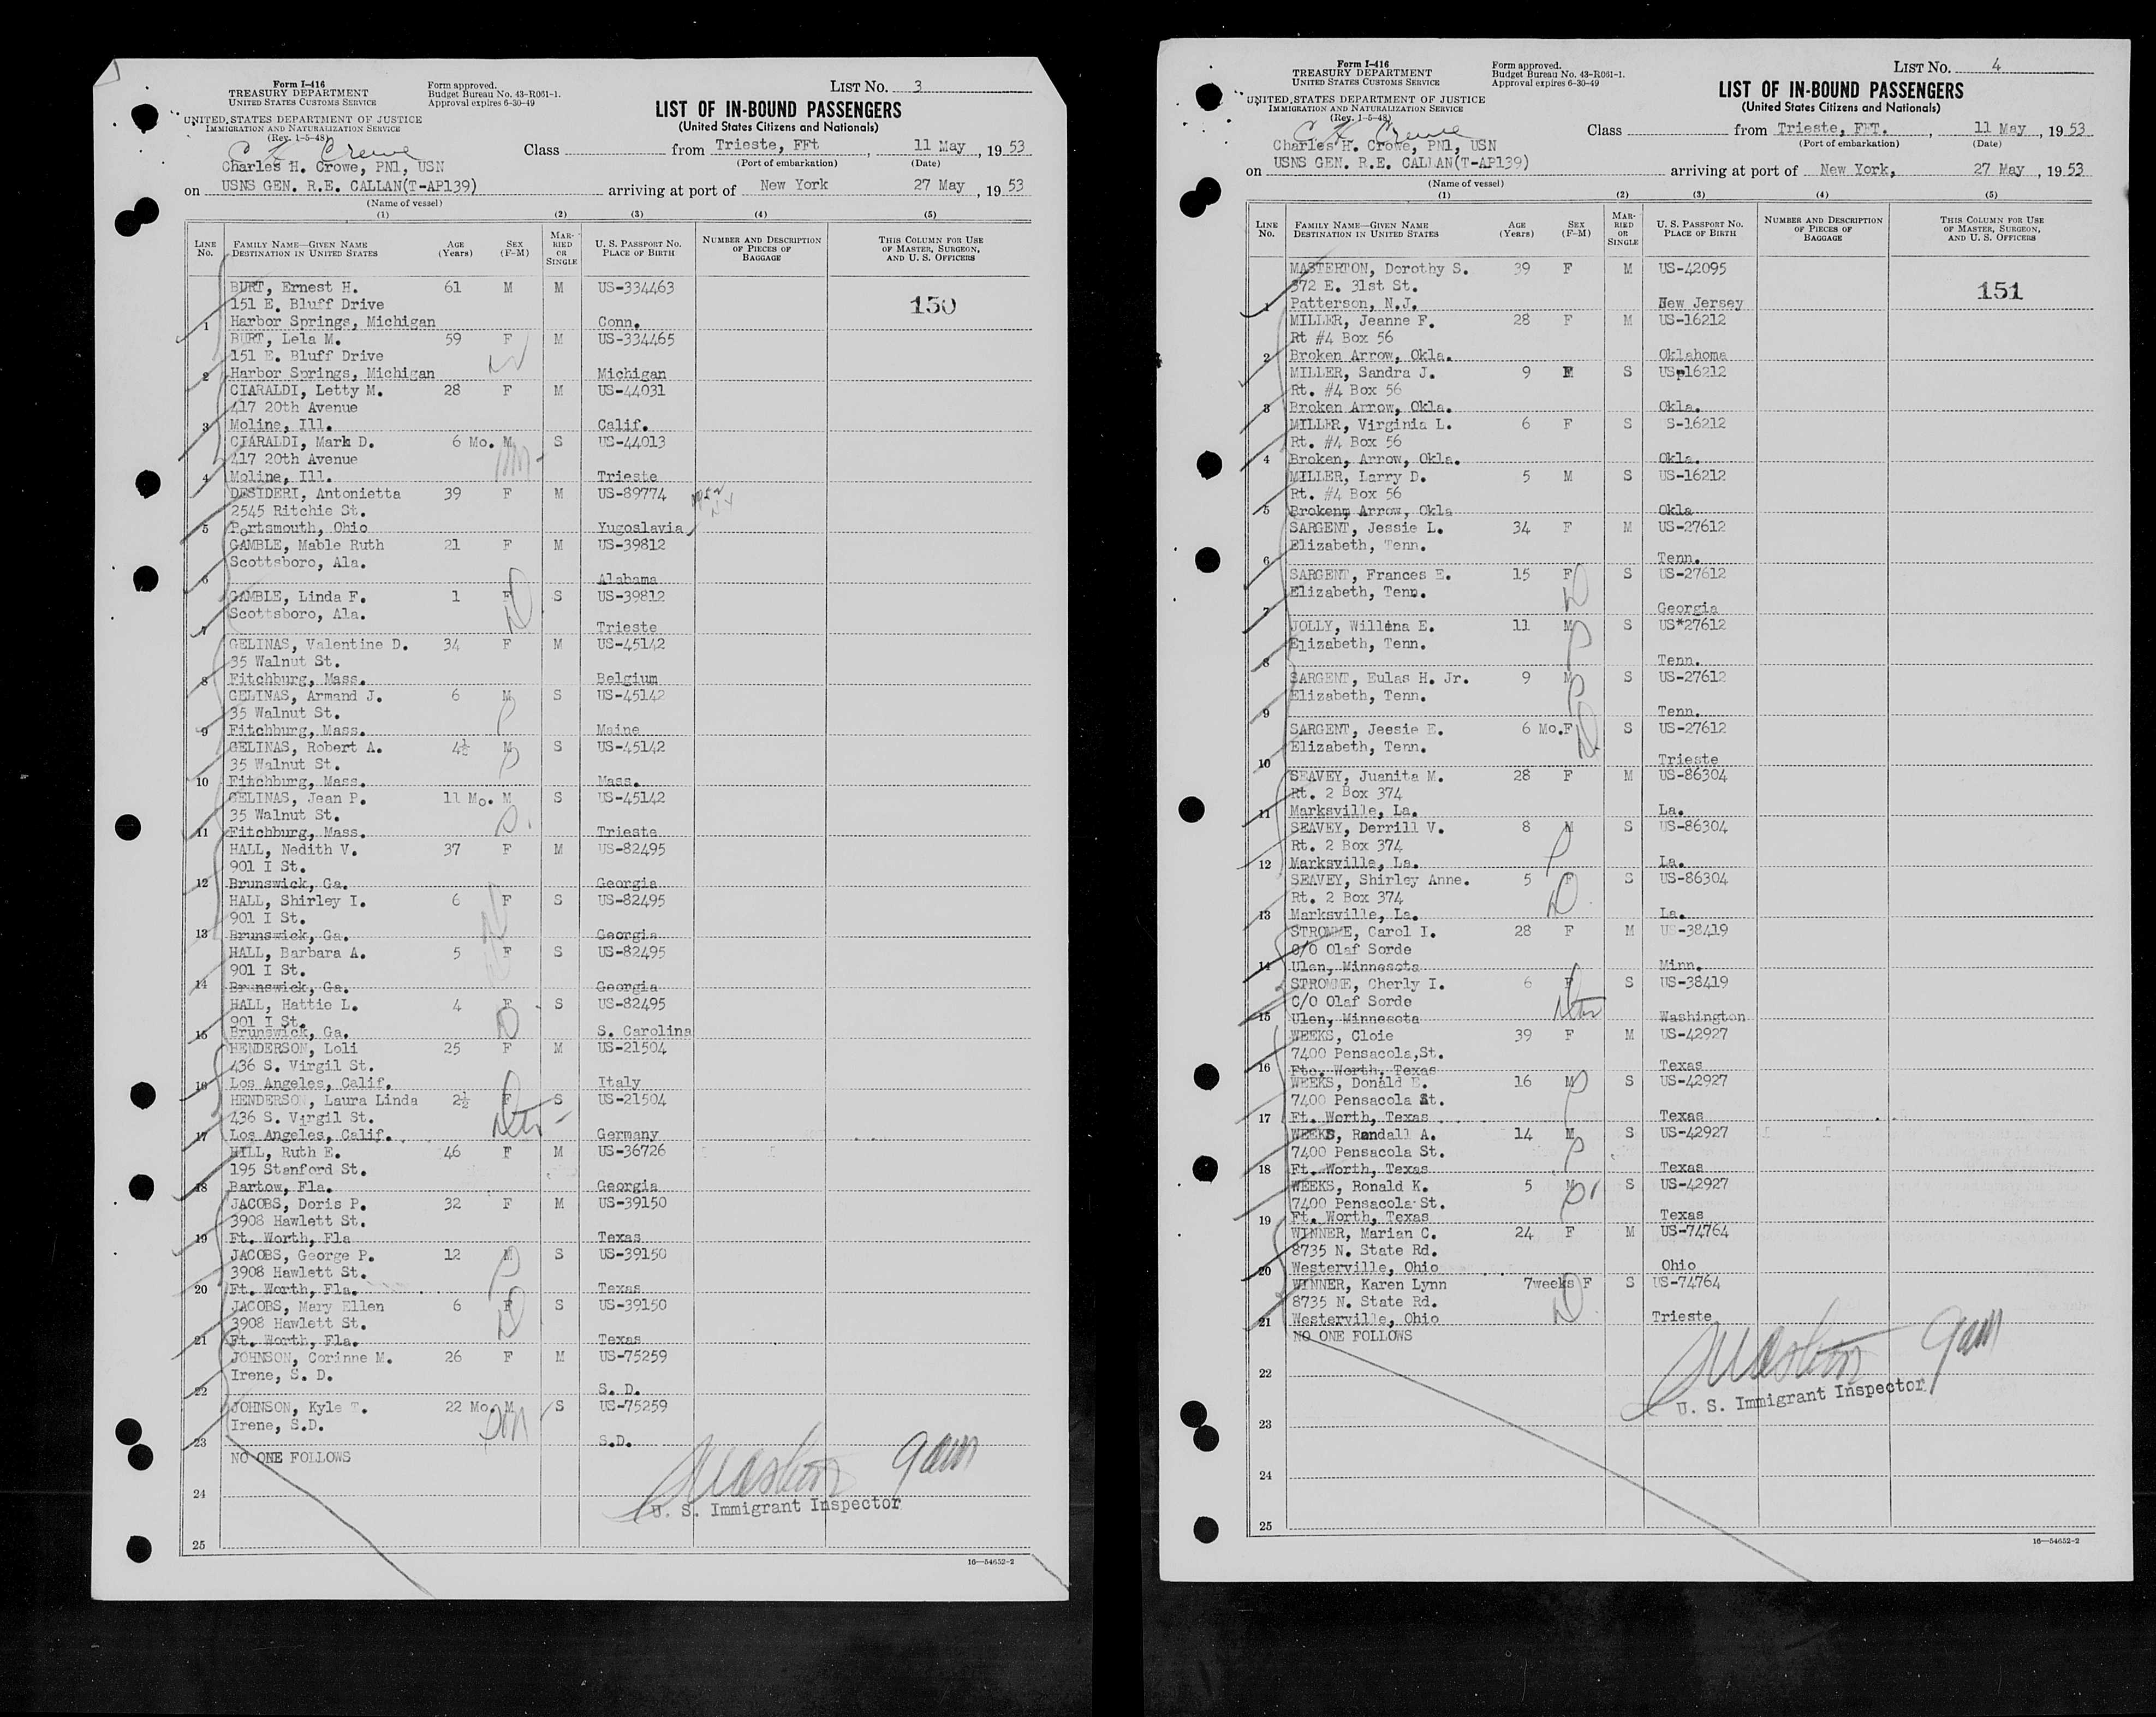 Form I-416
TREASURY DEPARTMENT
UNITED STATES CUSTOMS SERVICE
Form approved.
Budget Bureau No. 43-R061-1.
Approval expires 6-30-49
LIST No. 3
UNITED STATES DEPARTMENT OF JUSTICE
IMMIGRATION AND NATURALIZATION SERVICE
(Rev. 1-5-48)
LIST OF IN-BOUND PASSENGERS
(United States Citizens and Nationals)
C H Crowe
Charles H. Crowe, PN1, USN
Class from Trieste, FFt, 11 May, 1953
(Port of embarkation) (Date)
on USNS GEN. R.E. CALLAN(T-AP139) arriving at port of New York 27 May, 1953
(Name of vessel)
(1) (2) (3) (4) (5)
LINE No. FAMILY NAME—GIVEN NAME DESTINATION IN UNITED STATES AGE (Years) SEX (F-M) MARRIED OR SINGLE U. S. PASSPORT No. PLACE OF BIRTH NUMBER AND DESCRIPTION OF PIECES OF BAGGAGE THIS COLUMN FOR USE OF MASTER, SURGEON, AND U. S. OFFICERS
BURT, Ernest H. 61 M M US-334463
151 E. Bluff Drive 150
1 Harbor Springs, Michigan Conn.
BURT, Lela M. 59 F M US-334465
151 E. Bluff Drive
2 Harbor Springs, Michigan Michigan
CIARALDI, Letty M. 28 F M US-44031
417 20th Avenue
3 Moline, Ill. Calif.
CIARALDI, Mark D. 6 Mo. M S US-44013
417 20th Avenue
4 Moline, Ill. Trieste
DESIDERI, Antonietta 39 F M US-89774
2545 Ritchie St.
5 Portsmouth, Ohio Yugoslavia
GAMBLE, Mable Ruth 21 F M US-39812
Scottsboro, Ala.
6 Alabama
GAMBLE, Linda F. 1 F S US-39812
Scottsboro, Ala.
7 Trieste
GELINAS, Valentine D. 34 F M US-45142
35 Walnut St.
8 Fitchburg, Mass. Belgium
GELINAS, Armand J. 6 M S US-45142
35 Walnut St.
9 Fitchburg, Mass. Maine
GELINAS, Robert A. 4½ M S US-45142
35 Walnut St.
10 Fitchburg, Mass. Mass.
GELINAS, Jean P. 11 Mo. M S US-45142
35 Walnut St.
11 Fitchburg, Mass. Trieste
HALL, Nedith V. 37 F M US-82495
901 I St.
12 Brunswick, Ga. Georgia
HALL, Shirley I. 6 F S US-82495
901 I St.
13 Brunswick, Ga. Georgia
HALL, Barbara A. 5 F S US-82495
901 I St.
14 Brunswick, Ga. Georgia
HALL, Hattie L. 4 F S US-82495
901 I St.
15 Brunswick, Ga. S. Carolina
HENDERSON, Loli 25 F M US-21504
436 S. Virgil St.
16 Los Angeles, Calif. Italy
HENDERSON, Laura Linda 2½ F S US-21504
436 S. Virgil St.
17 Los Angeles, Calif. Germany
HILL, Ruth E. 46 F M US-36726
195 Stanford St.
18 Bartow, Fla. Georgia
JACOBS, Doris P. 32 F M US-39150
3908 Hawlett St.
19 Ft. Worth, Fla Texas
JACOBS, George P. 12 M S US-39150
3908 Hawlett St.
20 Ft. Worth, Fla. Texas
JACOBS, Mary Ellen 6 F S US-39150
3908 Hawlett St.
21 Ft. Worth, Fla. Texas
JOHNSON, Corinne M. 26 F M US-75259
Irene, S. D.
22 S. D.
JOHNSON, Kyle T. 22 Mo. M S US-75259
Irene, S.D.
23 S.D.
NO ONE FOLLOWS
24
U. S. Immigrant Inspector
25
16—54652-2
Form I-416
TREASURY DEPARTMENT
UNITED STATES CUSTOMS SERVICE
Form approved.
Budget Bureau No. 43-R061-1.
Approval expires 6-30-49
LIST No. 4
UNITED STATES DEPARTMENT OF JUSTICE
IMMIGRATION AND NATURALIZATION SERVICE
(Rev. 1-5-48)
LIST OF IN-BOUND PASSENGERS
(United States Citizens and Nationals)
C H Crowe
Charles H. Crowe, PN1, USN
Class from Trieste, FFT., 11 May, 1953
(Port of embarkation) (Date)
on USNS GEN. R.E. CALLAN(T-AP139) arriving at port of New York, 27 May, 1953
(Name of vessel)
(1) (2) (3) (4) (5)
LINE No. FAMILY NAME—GIVEN NAME DESTINATION IN UNITED STATES AGE (Years) SEX (F-M) MARRIED OR SINGLE U. S. PASSPORT No. PLACE OF BIRTH NUMBER AND DESCRIPTION OF PIECES OF BAGGAGE THIS COLUMN FOR USE OF MASTER, SURGEON, AND U. S. OFFICERS
MASTERTON, Dorothy S. 39 F M US-42095
372 E. 31st St. 151
1 Patterson, N.J. New Jersey
MILLER, Jeanne F. 28 F M US-16212
Rt #4 Box 56
2 Broken Arrow, Okla. Oklahoma
MILLER, Sandra J. 9 F S US-16212
Rt. #4 Box 56
3 Broken Arrow, Okla. Okla.
MILLER, Virginia L. 6 F S US-16212
Rt. #4 Box 56
4 Broken, Arrow, Okla. Okla.
MILLER, Larry D. 5 M S US-16212
Rt. #4 Box 56
5 Broken, Arrow, Okla Okla
SARGENT, Jessie L. 34 F M US-27612
Elizabeth, Tenn.
6 Tenn.
SARGENT, Frances E. 15 F S US-27612
Elizabeth, Tenn.
7 Georgia
JOLLY, Willena E. 11 M S US*27612
Elizabeth, Tenn.
8 Tenn.
SARGENT, Eulas H. Jr. 9 M S US-27612
Elizabeth, Tenn.
9 Tenn.
SARGENT, Jeesie E. 6 Mo. F S US-27612
Elizabeth, Tenn.
10 Trieste
SEAVEY, Juanita M. 28 F M US-86304
Rt. 2 Box 374
11 Marksville, La. La.
SEAVEY, Derrill V. 8 M S US-86304
Rt. 2 Box 374
12 Marksville, La. La.
SEAVEY, Shirley Anne. 5 F S US-86304
Rt. 2 Box 374
13 Marksville, La. La.
STROMME, Carol I. 28 F M US-38419
C/O Olaf Sorde
14 Ulen, Minnesota Minn.
STROMME, Cherly I. 6 F S US-38419
C/O Olaf Sorde
15 Ulen, Minnesota Washington
WEEKS, Cloie 39 F M US-42927
7400 Pensacola,St.
16 Ftc. Worth, Texas Texas
WEEKS, Donald E. 16 M S US-42927
7400 Pensacola St.
17 Ft. Worth, Texas Texas
WEEKS, Randall A. 14 M S US-42927
7400 Pensacola St.
18 Ft. Worth, Texas Texas
WEEKS, Ronald K. 5 M S US-42927
7400 Pensacola St.
19 Ft. Worth, Texas Texas
WINNER, Marian C. 24 F M US-74764
8735 N. State Rd.
20 Westerville, Ohio Ohio
WINNER, Karen Lynn 7weeks F S US-74764
8735 N. State Rd.
21 Westerville, Ohio Trieste
NO ONE FOLLOWS
22
U. S. Immigrant Inspector
23
24
25
16—54652-2